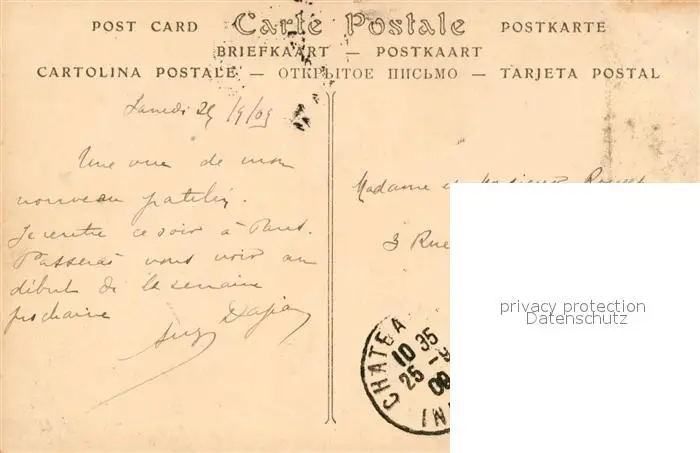 POST CARD Carte Postale POSTKARTE
BRIEFKAART — POSTKAART
CARTOLINA POSTALE — ОТКРЫТОЕ ПИСЬМО — TARJETA POSTAL
Samedi 25/9/09
Une vue de mon
nouveau patelin.
Je rentre ce soir à Paris.
Passerai vous voir au
début de la semaine
prochaine
Madame et Monsieur
3 Rue
CHATEA
10 35
25 - 9
09
INI
privacy protection
Datenschutz